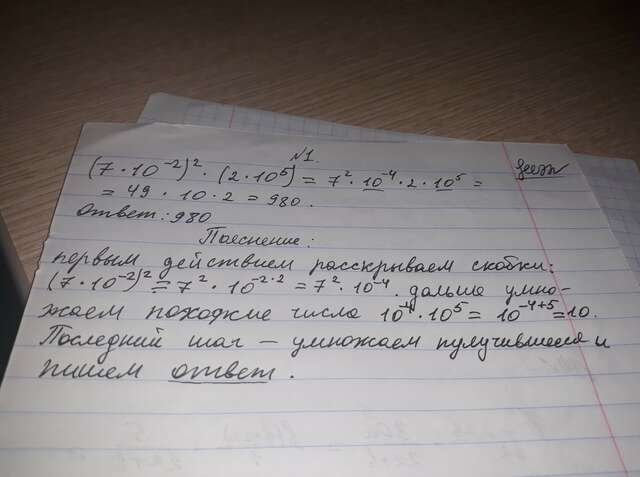 №1.
(7·10⁻²)²·(2·10⁵) = 7²·10⁻⁴·2·10⁵ =
= 49·10·2 = 980.
Ответ: 980
Пояснение:
первым действием расскрываем скобки:
(7·10⁻²)² = 7²·10⁻²·² = 7²·10⁻⁴. дальше умно-
жаем похожие числа 10⁻⁴·10⁵ = 10⁻⁴⁺⁵ = 10.
Последний шаг – умножаем пулучившееся и
пишем ответ.